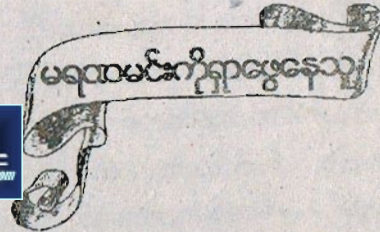 မရဏမင်းကိုရှာဖွေနေသူ
om